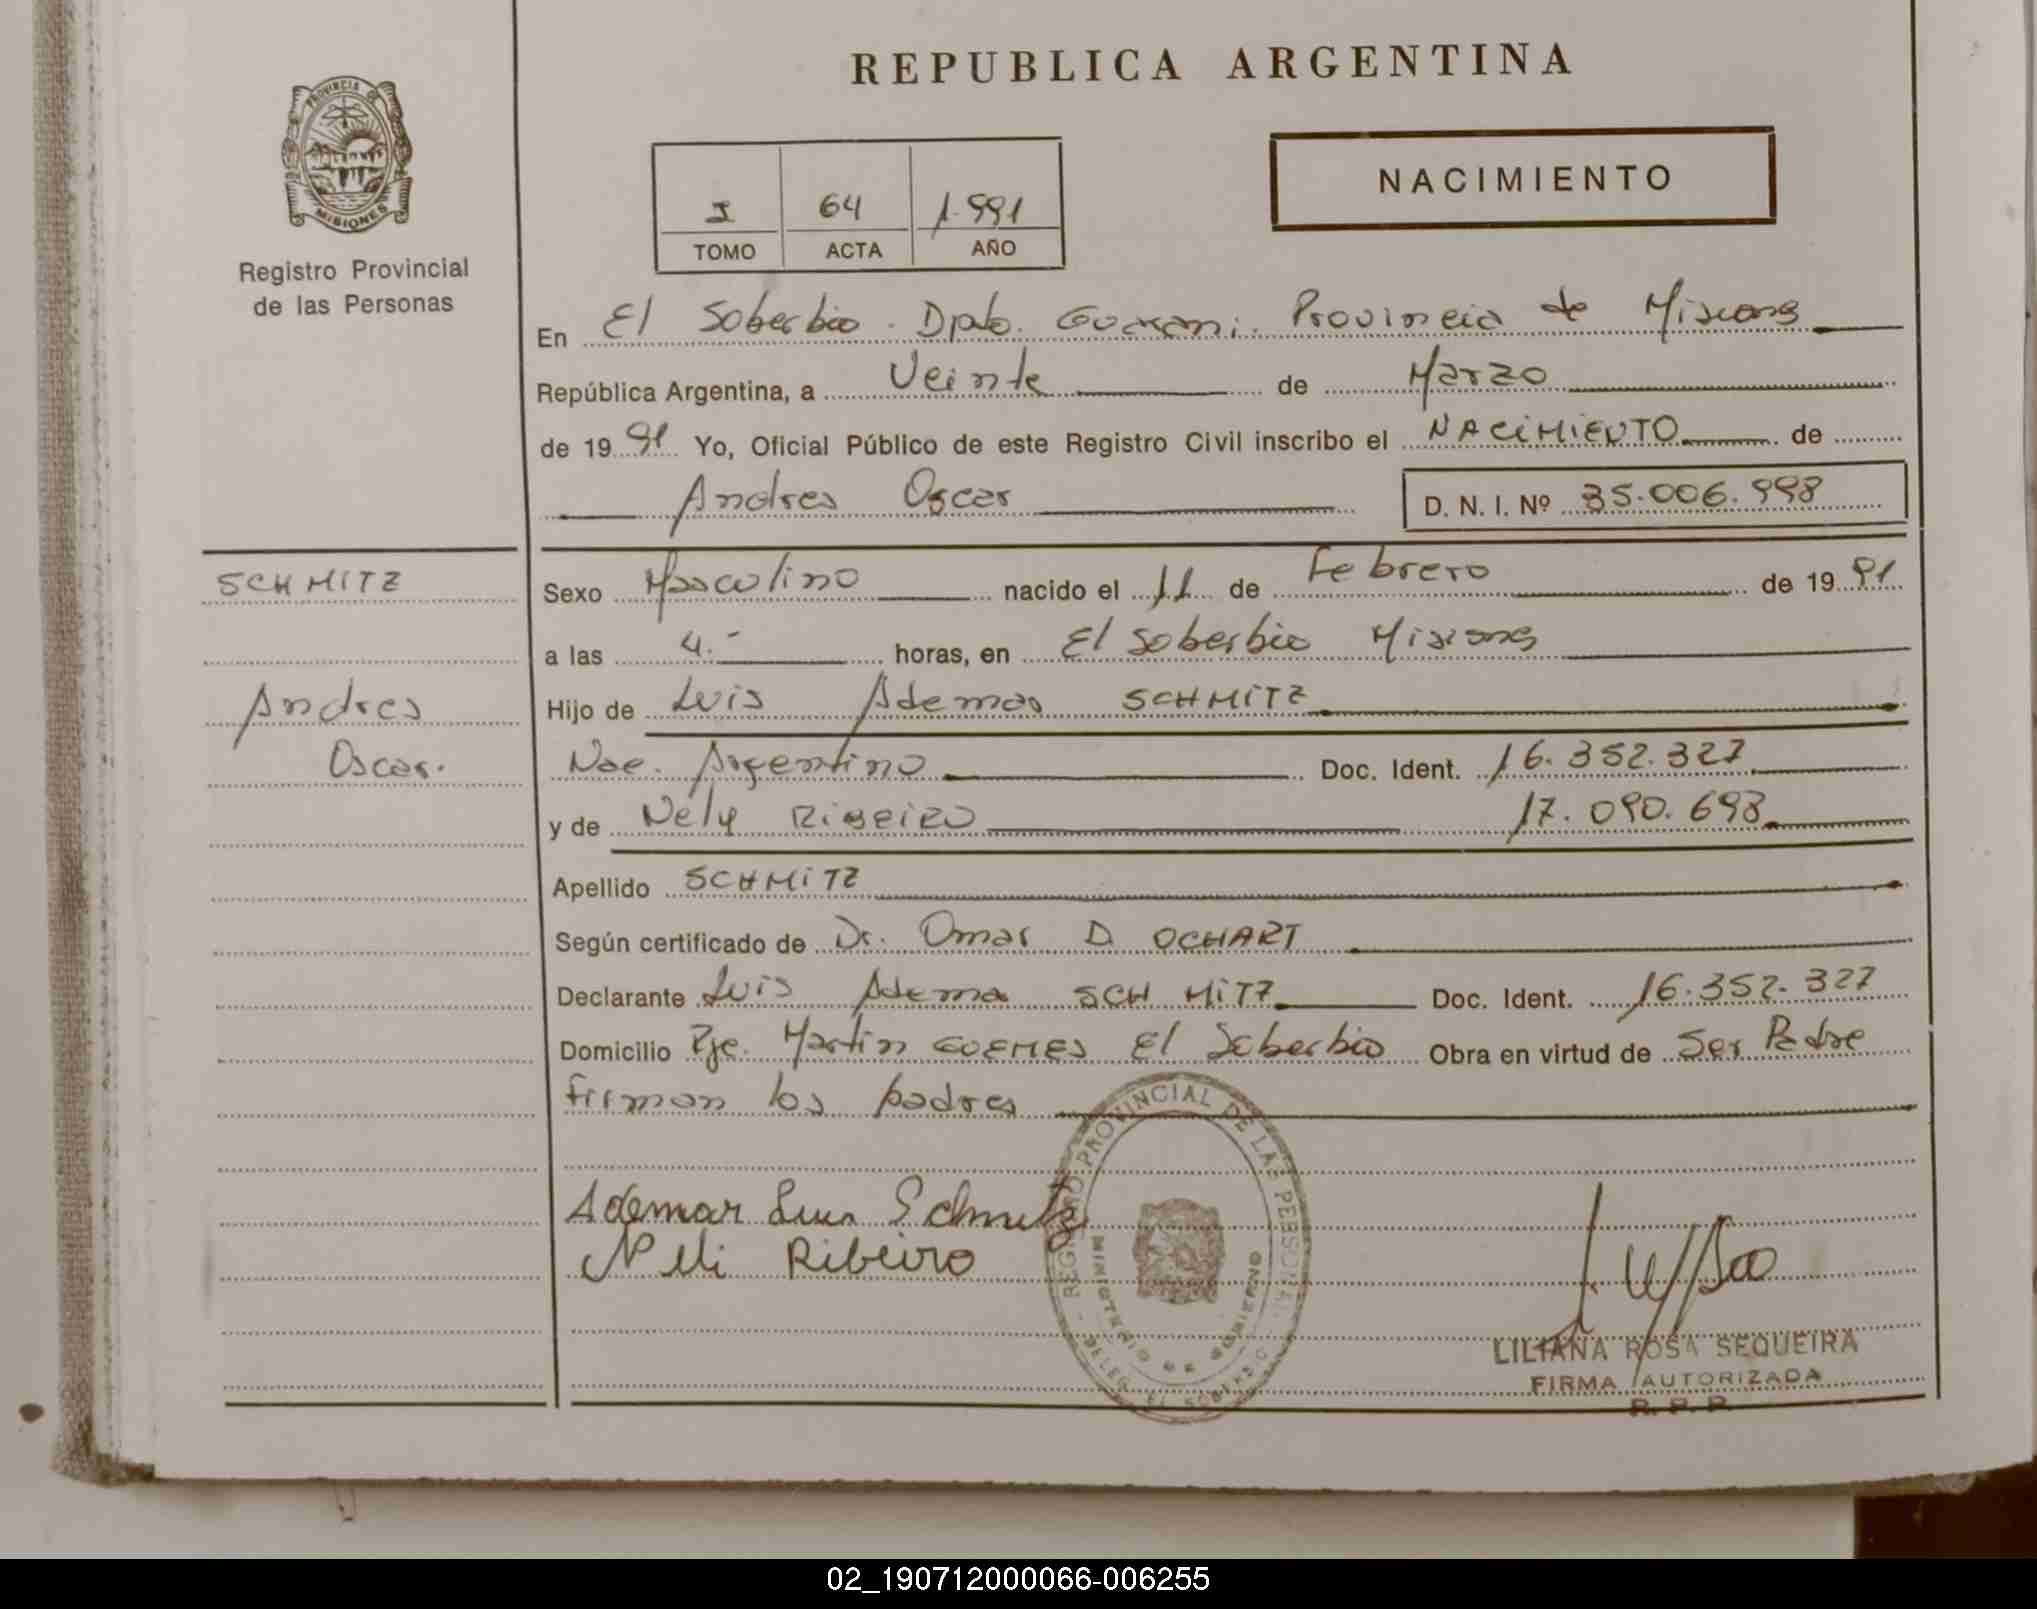 REPUBLICA ARGENTINA
PROVINCIA DE
MISIONES
Registro Provincial
de las Personas
I 64 1.991
TOMO ACTA AÑO
NACIMIENTO
En El Soberbio. Dpto. Guarani. Provincia de Misiones
República Argentina, a Veinte de Marzo
de 1991 Yo, Oficial Público de este Registro Civil inscribo el NACIMIENTO de
Andres Oscar D. N. I. Nº 35.006.998
SCHMITZ
Andres
Oscar.
Sexo Masculino nacido el 11 de Febrero de 1991
a las 4.- horas, en El Soberbio Misiones
Hijo de Luis Ademar SCHMITZ
Nac. Argentino Doc. Ident. 16.352.327
y de Nely RIBEIRO 17.090.698
Apellido SCHMITZ
Según certificado de Dr. Omar D. OCHART
Declarante Luis Adema SCHMITZ Doc. Ident. 16.352.327
Domicilio Pje. Martin GOEMES El Soberbio Obra en virtud de Ser Padre
firman los padres
Ademar Luis Schmitz
Nelli Ribeiro
REGISTRO PROVINCIAL DE LAS PERSONAS
MINISTERIO DE GOBIERNO
LILIANA ROSA SEQUEIRA
FIRMA AUTORIZADA
R. P. P.
02_190712000066-006255